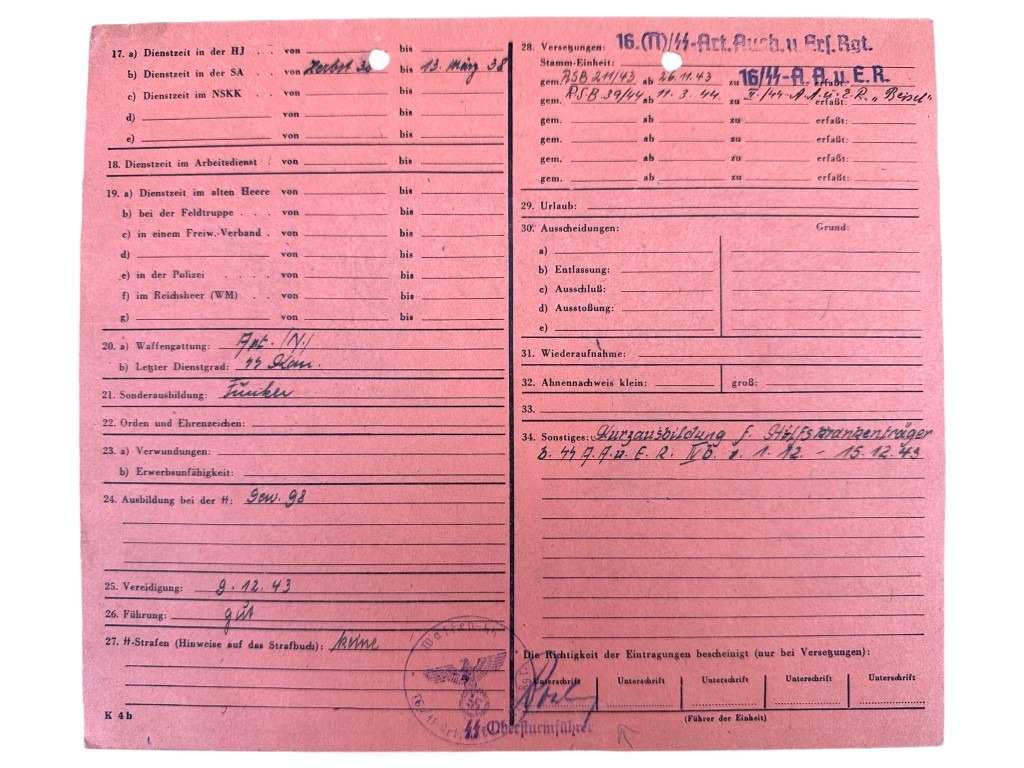 17. a) Dienstzeit in der HJ . . von bis
b) Dienstzeit in der SA . . von Herbst 36 bis 13. März 38
c) Dienstzeit im NSKK . . von bis
d) von bis
e) von bis
18. Dienstzeit im Arbeitsdienst . von bis
19. a) Dienstzeit im alten Heere von bis
b) bei der Feldtruppe . . . von bis
c) in einem Freiw.-Verband . von bis
d) von bis
e) in der Polizei . . . . von bis
f) im Reichsheer (WM) . . von bis
g) von bis
20. a) Waffengattung: Art. (N.)
b) Letzter Dienstgrad: ᛋᛋ Kan.
21. Sonderausbildung: Funker
22. Orden und Ehrenzeichen:
23. a) Verwundungen:
b) Erwerbsunfähigkeit:
24. Ausbildung bei der ᛋᛋ: Gew. 98
25. Vereidigung: 9. 12. 43
26. Führung: gut
27. ᛋᛋ-Strafen (Hinweise auf das Strafbuch): keine
K 4b
28. Versetzungen: 16.(N)/ᛋᛋ-Art. Ausb. u. Ers. Rgt.
Stamm-Einheit:
gem. RSB 211/43 ab 26.11.43 zu 16/ᛋᛋ-A.A.u.E.R.
gem. R.S.B. 39/44 ab 11. 3. 44 zu II./ᛋᛋ-A.A.u.E.R. erfaßt:
gem. ab zu erfaßt:
gem. ab zu erfaßt:
gem. ab zu erfaßt:
gem. ab zu erfaßt:
29. Urlaub:
30. Ausscheidungen: Grund:
a)
b) Entlassung:
c) Ausschluß:
d) Ausstoßung:
e)
31. Wiederaufnahme:
32. Ahnennachweis klein: groß:
33.
34. Sonstiges: Kurzausbildung f. Hilfskrankenträger
b. ᛋᛋ A.A.u.E.R. IVb. v. 1. 12. - 15. 12. 43
Die Richtigkeit der Eintragungen bescheinigt (nur bei Versetzungen):
Unterschrift Unterschrift Unterschrift Unterschrift Unterschrift
(Führer der Einheit)
Waffen-ᛋᛋ
ᛋᛋ-Obersturmführer